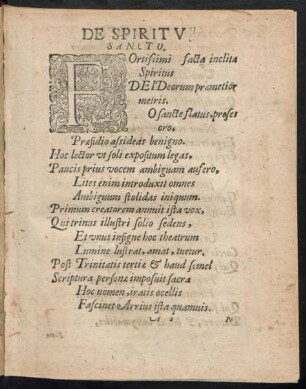 DE SPIRITV
SANCTO.
FOrtissimi facta inclita
Spiritus
DEI Deorum præmetior
metris.
O sancte flatus, proses
oro,
Præsidio assideas benigno.
Hoc lector vt soli expositum legas,
Paucis prius vocem ambiguam aufero,
Lites enim introduxit omnes
Ambiguum stolidas iniquum.
Primum creatorem annuit ista vox,
Qui trinus illustri solio sedens,
Et vnus insigne hoc theatrum
Lumine lustrat, amat, tuetur.
Post Trinitatis tertiæ & haud semel
Scriptura personæ imposuit sacra
Hoc nomen, iratis ocellis
Fascinet Arrius ista quamuis.
A 2